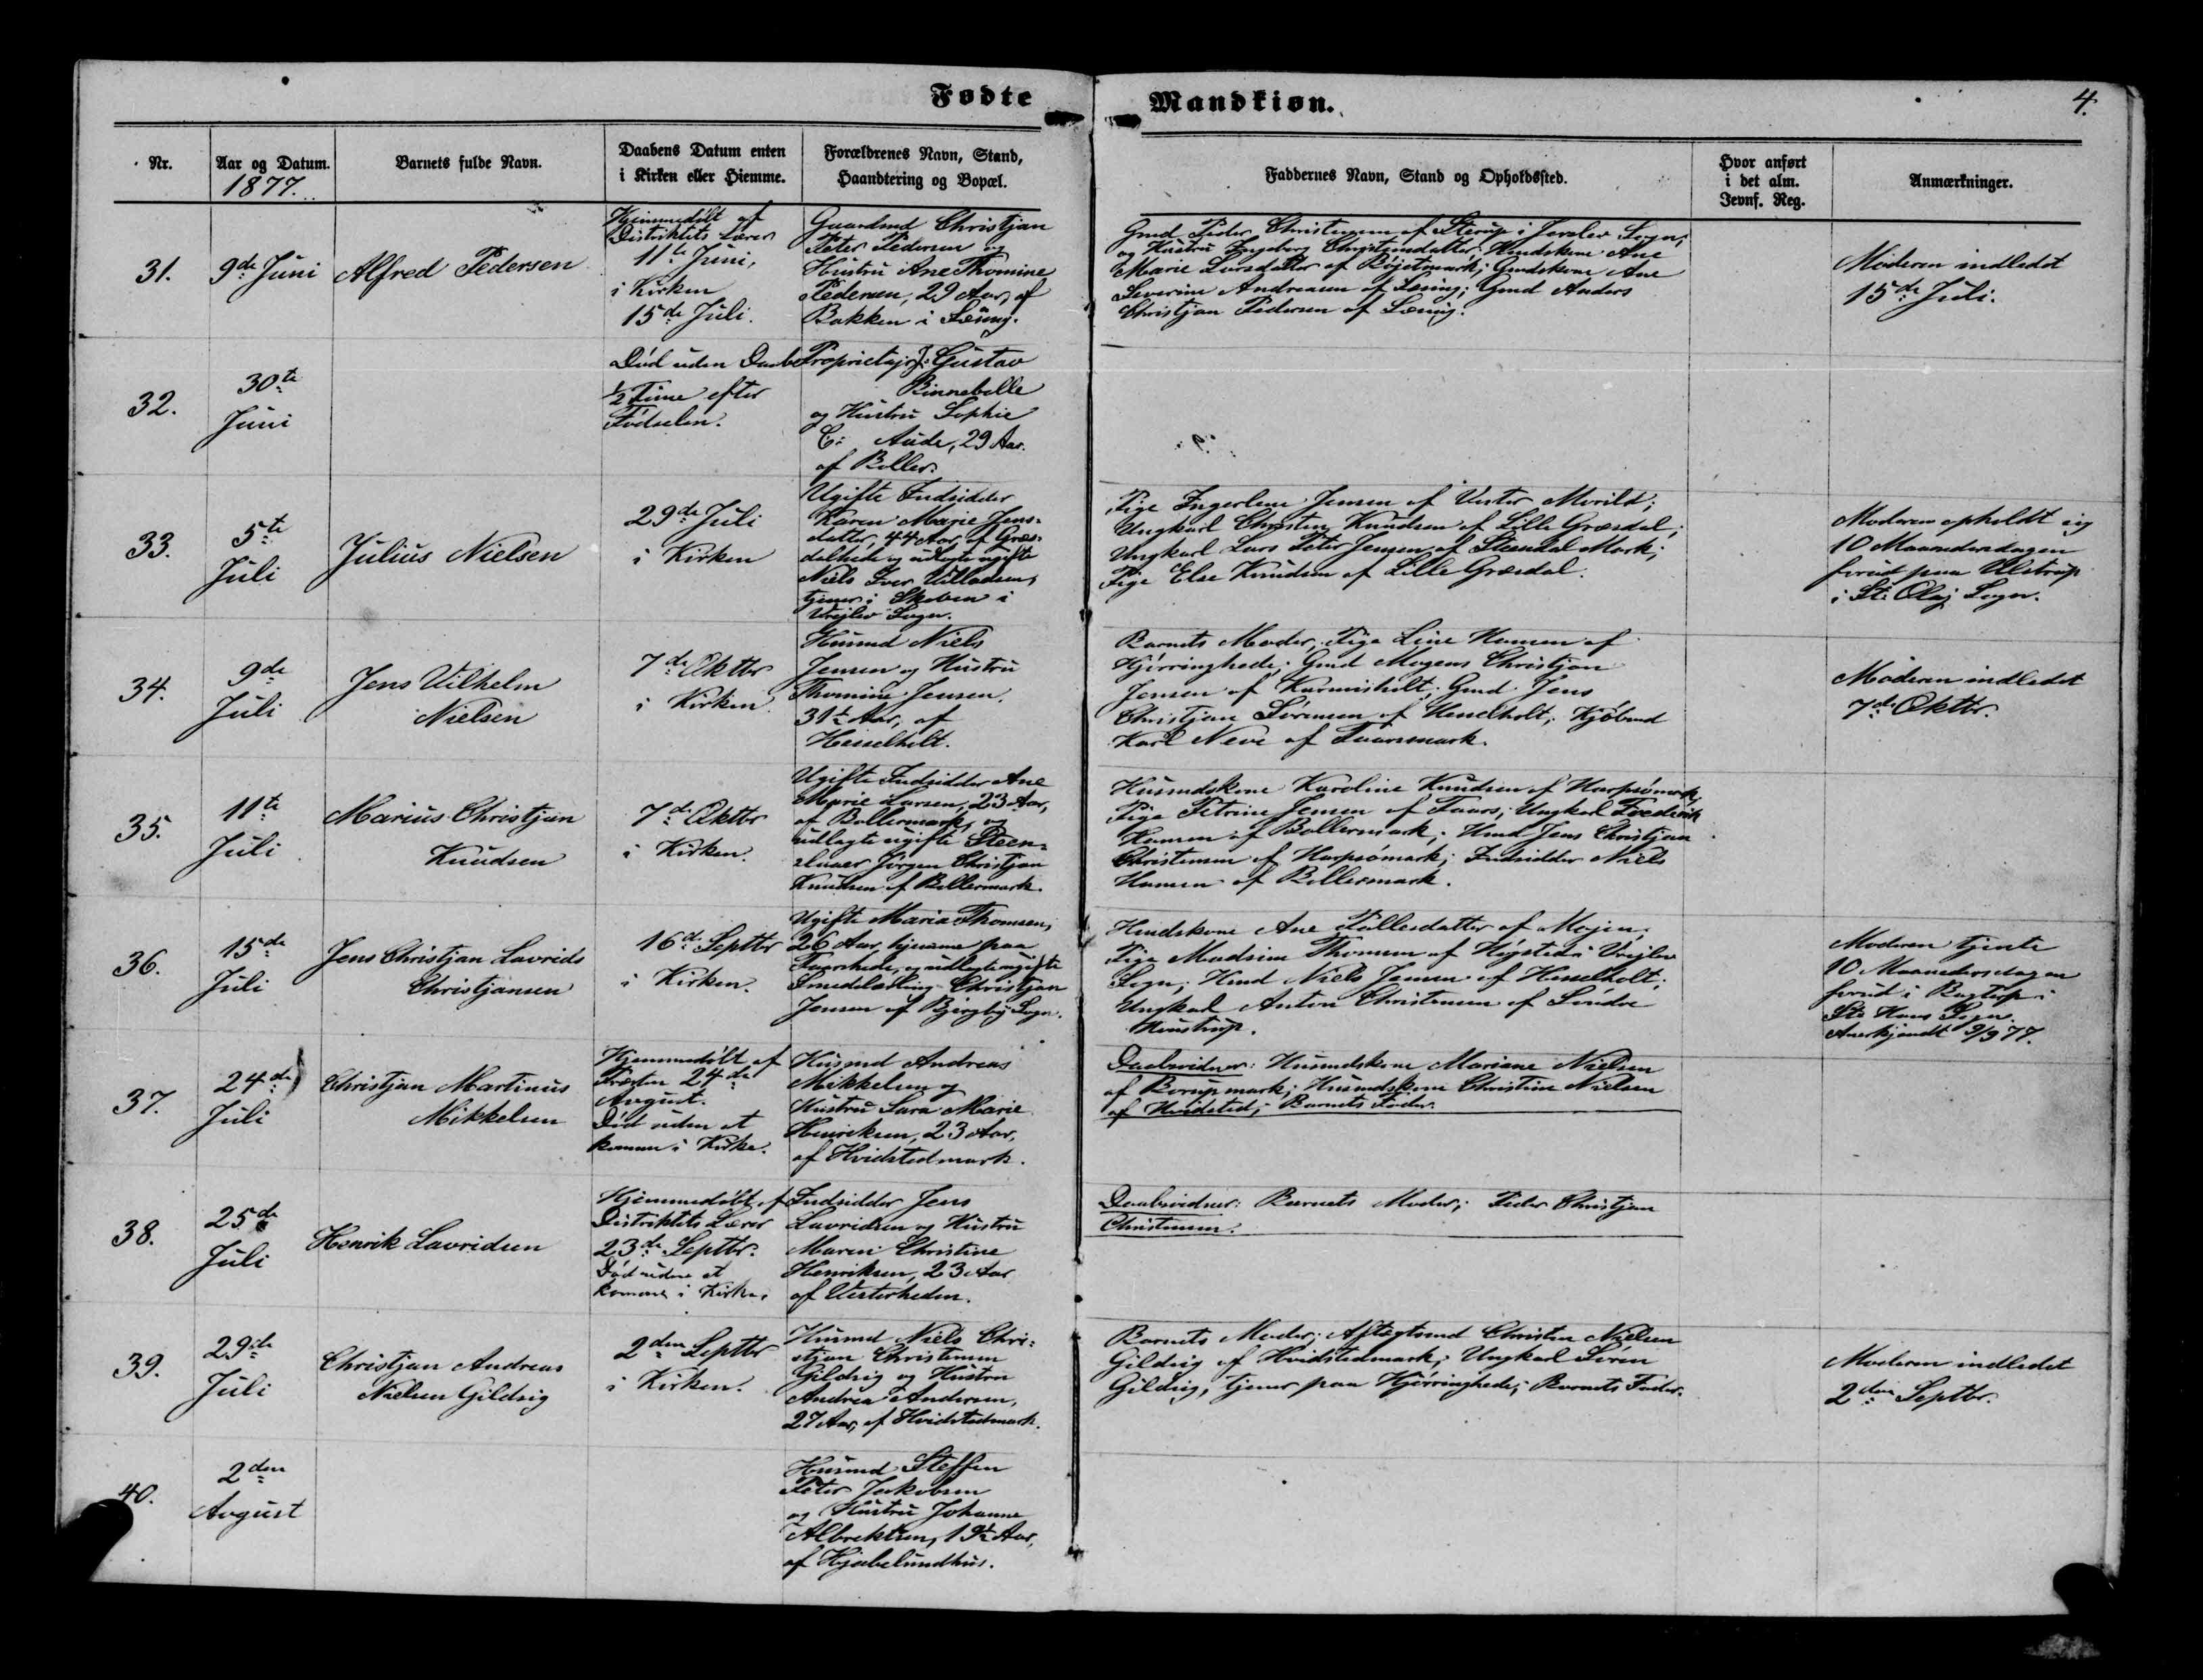 Fødte Mandkiøn. 4.
Nr.
Aar og Datum.
1877.
Barnets fulde Navn.
Daabens Datum enten
i Kirken eller Hiemme.
Forældrenes Navn, Stand,
Haandtering og Bopæl.
Faddernes Navn, Stand og Opholdssted.
Hvor anført
i det alm.
Jevnf. Reg.
Anmærkninger.
31.
9de Juni
Alfred Pedersen
Hjemmedøbt af
Distriktets Lærer
11te Juni,
i Kirken
15de Juli.
Gaardmd Christjan
Peter Pedersen og
Hustru Ane Thomine
Pedersen, 29 Aar, af
Bakken i Sæsing.
Gmd Peder Christensen af Sterup i Jerslev Sogn,
og Hustru Ingeborg Christensdatter; Hmdskone Ane
Marie Larsdatter af Bøjetmark; Gmdskone Ane
Severine Andreasen af Sæsing; Gmd Anders
Christjan Pedersen af Sæsing.
Moderen indledet
15de Juli.
32.
30te
Juni
Død uden Daab
1/2 Time efter
Fødselen.
Proprietajr J: Gustav
Binnebelle
og Hustru Sophie
C: Aude, 29 Aar.
af Boller.
33.
5te
Juli
Julius Nielsen
29de Juli
i Kirken
Ugifte Indsidder
Karen Marie Jens-
datter, 44 Aar, af Græs-
dalhede og udlagte ugifte
Niels Iver Villadsen,
tjener i Skoven i
Vrejlev Sogn.
Pige Ingerlene Jensen af Vester Mørild;
Ungkarl Christen Knudsen af Lille Græsdal;
Ungkarl Lars Peter Jensen af Steendal Mark;
Pige Else Knudsen af Lille Græsdal.
Moderen opholdt sig
10 Maanedersdagen
forud paa Ulstrup
i St: Olaj Sogn.
34.
9de
Juli
Jens Vilhelm
Nielsen
7de Oktbr
i Kirken
Husmd Niels
Jensen og Hustru
Thomine Jensen,
31te Aar, af
Hesselholt.
Barnets Moder; Pige Line Hansen af
Hjørringhede; Gmd Mogens Christjan
Jensen af Karmisholt; Gmd Jens
Christjan Sørensen af Hesselholt; Kjøbmd
Karl Neve af Taarsmark.
Moderen indledet
7de Oktbr.
35.
11te
Juli
Marius Christjan
Knudsen
7de Oktbr
i Kirken.
Ugifte Indsidder Ane
Marie Larsen, 23 Aar,
af Bollermark, og
udlagte ugifte Steen-
sluaer Jørgen Christjan
Knudsen af Bollermark.
Husmdskone Karoline Knudsen af Harpsømark;
Pige Petrine Jensen af Taars; Ungkarl Frederik
Hansen af Bollermark; Hmd Jens Christjan
Christensen af Harpsømark; Indsidder Niels
Hansen af Bollermark.
36.
15de
Juli
Jens Christjan Lavrids
Christjansen
16de Septbr
i Kirken.
Ugifte Maria Thomsen,
26 Aar, hjemme paa
Taarshede, og udlagte ugifte
Smedelærling Christjan
Jensen af Bjergby Sogn.
Hmdskone Ane Pallesdatter af Mejen;
Pige Madsine Thomsen af Højsted i Vrejlev
Sogn; Hmd Niels Jensen af Hesselholt;
Ungkarl Anton Christensen af Sønder
Havstrup.
Moderen tjente
10 Maanedersdagen
forud i Bagterp i
Sts Hans Sogn.
Anerkjendt 9/9 77.
37.
24de
Juli
Christjan Martinus
Mikkelsen
Hjemmedøbt af
Præsten 24de
August.
Død uden at
komme i Kirke.
Husmd Andreas
Mikkelsen og
Hustru Sara Marie
Henriksen, 23 Aar,
af Hvidstedmark.
Daabsvidner: Husmdskone Mariane Nielsen
af Borupmark; Husmdskone Christine Nielsen
af Hvidsted; Barnets Fader.
38.
25de
Juli
Henrik Lavridsen
Hjemmedøbt af
Distriktets Lærer
23de Septbr.
Død uden at
komme i Kirke.
Indsidder Jens
Lavridsen og Hustru
Maren Christine
Henriksen, 23 Aar
af Vesterheden.
Daabsvidner: Barnets Moder; Peder Christjan
Christensen.
39.
29de
Juli
Christjan Andreas
Nielsen Gildsig
2den Septbr
i Kirken.
Husmd Niels Chri-
stjan Christensen
Gildsig og Hustru
Andrea Andersen,
27 Aar, af Hvidstedmark.
Barnets Moder; Aftægtsmd Christen Nielsen
Gildsig af Hvidstedmark; Ungkarl Søren
Gildsig, tjener paa Hjørringhede; Barnets Fader.
Moderen indledet
2den Septbr.
40.
2den
August
Husmd Steffen
Peter Jakobsen
og Hustru Johanne
Albrektsen, 19 Aar,
af Hjabelundhus.